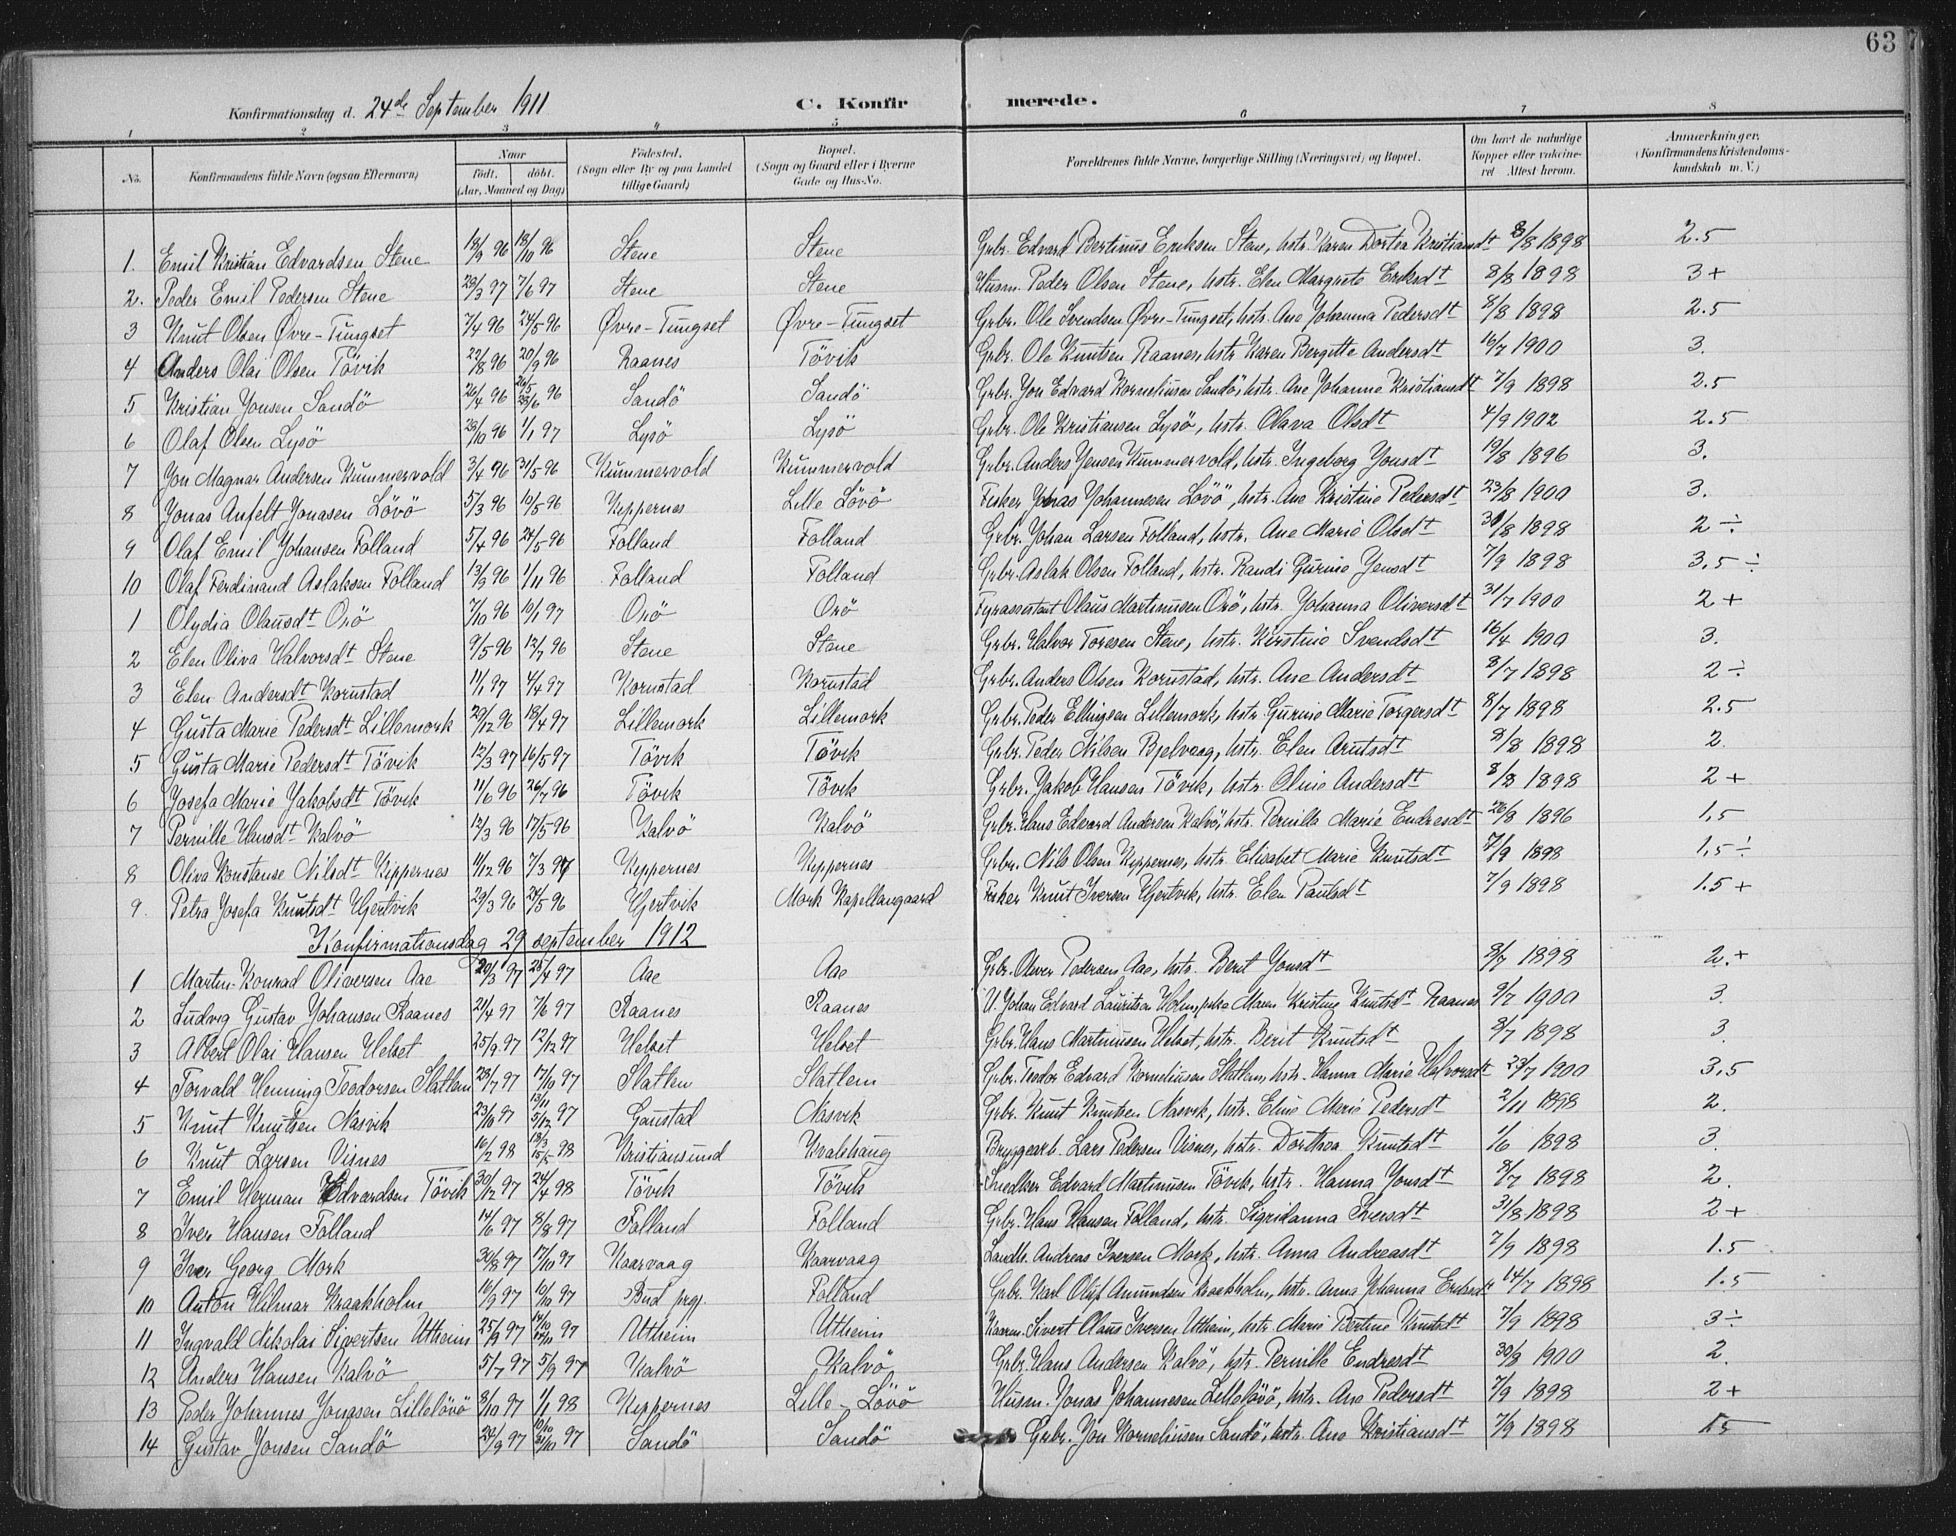 63
Konfirmationsdag d. 24de September 1911 C. Konfirmerede.
1 2 3 4 5 6 7 8
No. Konfirmandens fulde Navn (ogsaa Efternavn) Naar født. døbt. (Aar, Maaned og Dag) Fødested. (Sogn eller By og paa Landet tillige Gaard) Bopæl. (Sogn og Gaard eller i Byerne Gade og Hus-No. Forældrenes fulde Navne, borgerlige Stilling (Næringsvei) og Bopæl. Om havt de naturlige Kopper eller vakcineret Attest herom. Anmærkninger. (Konfirmandens Kristendomskundskab m. V.)
1. Emil Kristian Edvardsen Stene 18/9 96 18/10 96 Stene Stene Grbr. Edvard Bertinus Eriksen Stene, hstr. Karen Dortea Kristiansdt 8/8 1898 2.5
2. Peder Emil Pedersen Stene 29/3 97 7/6 97 Stene Stene Husm. Peder Olsen Stene, hstr. Elen Margrete Eriksdt 8/8 1898 3+
3 Knut Olsen Øvre-Tungset 7/4 96 24/5 96 Øvre-Tungset Øvre-Tungset Grbr. Ole Svendsen Øvre-Tungset, hstr. Ane Johanna Pedersdt 8/8 1898 2.5
4 Anders Olai Olsen Tövik 22/8 96 20/9 96 Raanes Tövik Grbr. Ole Knutsen Raanes, hstr. Karen Bergitte Andersdt 16/7 1900 3.
5 Kristian Jonsen Sandö 26/4 96 26/5 23/6 96 Sandö Sandö Grbr. Jon Edvard Korneliusen Sandö, hstr. Ane Johanne Kristiansdt 7/9 1898 2.5
6 Olaf Olsen Lysö 29/10 96 1/1 97 Lysö Lysö Grbr. Ole Kristiansen Lysö, hstr. Olava Olsdt 4/9 1902 2.5
7 Jon Magnar Andersen Kummervold 3/4 96 31/5 96 Kummervold Kummervold Grbr. Anders Jensen Kummervold, hstr. Ingeborg Jonsdt 19/8 1896 3.
8 Jonas Anfelt Jonasen Lövö 5/3 96 10/5 96 Kippernes Lille Lövö Fisker Jonas Johannesen Lövö, hstr. Ane Kristine Pedersdt 23/8 1900 3.
9 Olaf Emil Johansen Folland 5/4 96 24/5 96 Folland Folland Grbr. Johan Larsen Folland, hstr. Ane Marie Olsdt 31/8 1898 2 ÷
10 Olaf Ferdinand Aslaksen Folland 13/9 96 1/11 96 Folland Folland Grbr. Aslak Olsen Folland, hstr. Randi Gurine Jensdt 7/9 1898 3,5 ÷
1 Olydia Olausdt Orö 7/10 96 10/1 97 Orö Orö Fyrassistant Olaus Martinusen Orö, hstr. Johanna Oliversdt 31/7 1900 2 +
2 Elen Oliva Halvorsdt Stene 9/5 96 12/7 96 Stene Stene Grbr. Halvor Toresen Stene, hstr. Kirstine Svendsdt 16/4 1900 3.
3 Elen Andersdt Kornstad 11/1 97 4/4 97 Kornstad Kornstad Grbr. Anders Olsen Kornstad, hstr. Ane Andersdt 8/7 1898 2 ÷
4 Gusta Marie Pedersdt Lillemork 29/12 96 18/4 97 Lillemork Lillemork Grbr. Peder Ellingsen Lillemork, hstr. Gurine Marie Torgersdt 8/7 1898 2.5
5 Gusta Marie Pedersdt Tövik 12/3 97 16/5 97 Tövik Tövik Grbr. Peder Nilsen Bjelvaag, hstr. Elen Arntsdt 8/8 1898 2.
6 Josefa Marie Jakobsdt Tövik 11/6 96 26/7 96 Tövik Tövik Grbr. Jakob Hansen Tövik, hstr. Oline Andersdt 8/8 1898 2 +
7 Pernille Hansdt Kalvö 12/3 96 17/5 96 Kalvö Kalvö Grbr. Hans Edvard Andersen Kalvö, hstr. Pernilla Marie Endresdt 26/8 1896 1,5
8 Oliva Konstanse Nilsdt Kippernes 11/12 96 7/3 97 Kippernes Kippernes Grbr. Nils Olsen Kippernes, hstr. Elisabet Marie Knutsdt 7/9 1898 1,5 ÷
9. Petra Josefa Knutsdt Hjertvik 29/3 96 24/5 96 Hjertvik Mork Kapellangaard Fisker Knut Iversen Hjertvik, hstr. Elen Paulsdt 7/9 1898 1.5 +
Konfirmationsdag 29 september 1912
1 Martin Konrad Oliversen Aae 20/3 97 25/4 97 Aae Aae Grbr. Oliver Pedersen Aae, hstr. Berit Jonsdt 8/7 1898 2.+
2 Ludvig Gustav Johansen Raanes 21/4 97 7/6 97 Raanes Raanes U. Johan Edvard Lauritsen Holm, pike Maren Kristine Knutsdt Raanes 9/7 1900 3.
3 Albert Olai Hansen Helset 25/9 97 12/12 97 Helset Helset Grbr. Hans Martinusen Helset, hstr. Berit Knutsdt 8/7 1898 3.
4 Torvald Henning Teodorsen Slatlem 23/7 97 17/10 97 Slatlem Slatlem Grbr. Teodor Edvard Korneliusen Slatlem, hstr. Hanna Marie Halvorsdt 23/7 1900 3,5
5 Knut Knutsen Nasvik 23/10 97 13/11 5/12 97 Gaustad Nasvik Grbr. Knut Knutsen Nasvik, hstr. Eline Marie Pedersdt 2/11 1898 2.
6 Knut Larsen Visnes 16/2 98 13/3 15/5 98 Kristiansund Kvalehaug Bryggearb. Lars Pedersen Visnes, hstr. Dorthea Knutsdt 1/6 1898 3.
7 Emil Herman Edvardsen Tövik 30/12 97 24/4 98 Tövik Tövik Snedker Edvard Martinusen Tövik, hstr. Hanna Jonsdt 8/7 1898 2.
8 Iver Hansen Folland 14/6 97 8/8 97 Folland Folland Grbr. Hans Hansen Folland, hstr. Sigridanna Iversdt 31/8 1898 2 +
9 Iver Georg Mork 30/8 97 17/10 97 Kaarvaag Kaarvaag Landh. Andreas Iversen Mork, hstr. Anna Andreasdt 7/9 1898 1.5
10 Anton Hilmar Kraakholm 16/9 97 10/10 97 Bud prgj. Folland Grbr. Karl Oluf Amundsen Kraakholm, hstr. Anna Johanna Eriksdt 14/7 1898 1.5
11 Ingvald Nikolai Sivertsen Utheim 25/9 97 14/10 97 Utheim Utheim Kaarm. Sivert Olaus Iversen Utheim, hstr. Marie Bertine Knutsdt 7/9 1898 3 ÷
12 Anders Hansen Kalvö 5/7 97 5/9 97 Kalvö Kalvö Grbr. Hans Andersen Kalvö, hstr. Pernille Endresdt 30/8 1900 2.
13 Peder Johannes Jonasen Lillelövö 8/10 97 1/1 98 Kippernes Lille-Lövö Husm. Jonas Johannesen Lillelövö, hstr. Ane Pedersdt 7/9 1898 2 +
14 Gustav Jonsen Sandö 24/9 97 10/10 97 Sandö Sandö Grbr. Jon Korneliusen Sandö, hstr. Ane Kristiansdt 7/9 1898 1.5